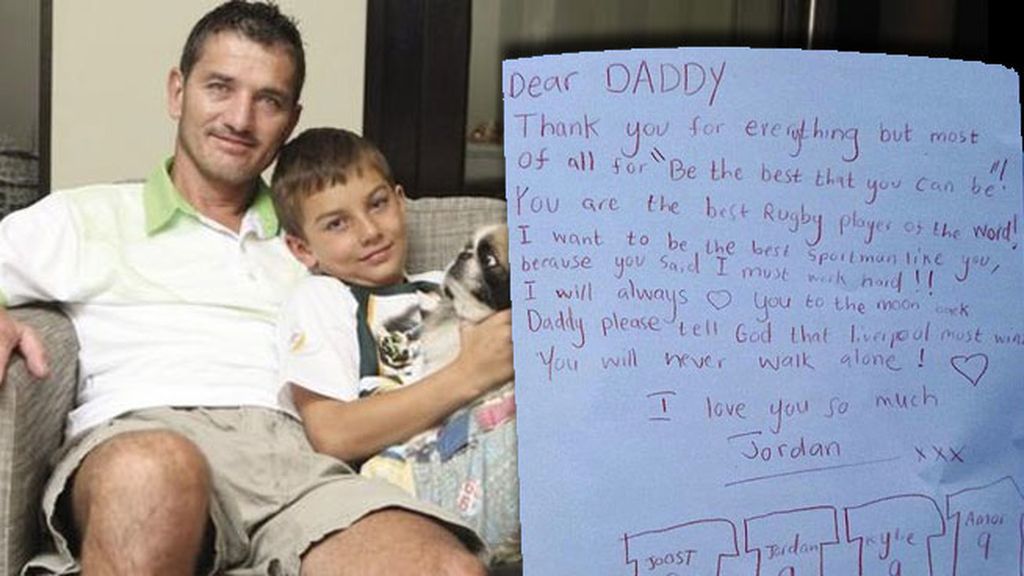 Dear DADDY
Thank you for everything but most
of all for "Be the best that you can be"!
You are the best Rugby player of the Word!
I want to be the best Sportman like you,
because you said I must work hard!!
I will always ♡ you to the moon
Daddy please tell God that liverpool must win
You will never walk alone! ♡
I love you so much
Jordan xxx
JOOST Jordan Kylie
9 9